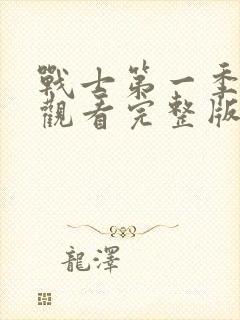 戰士第一季
觀看完整版
龍澤